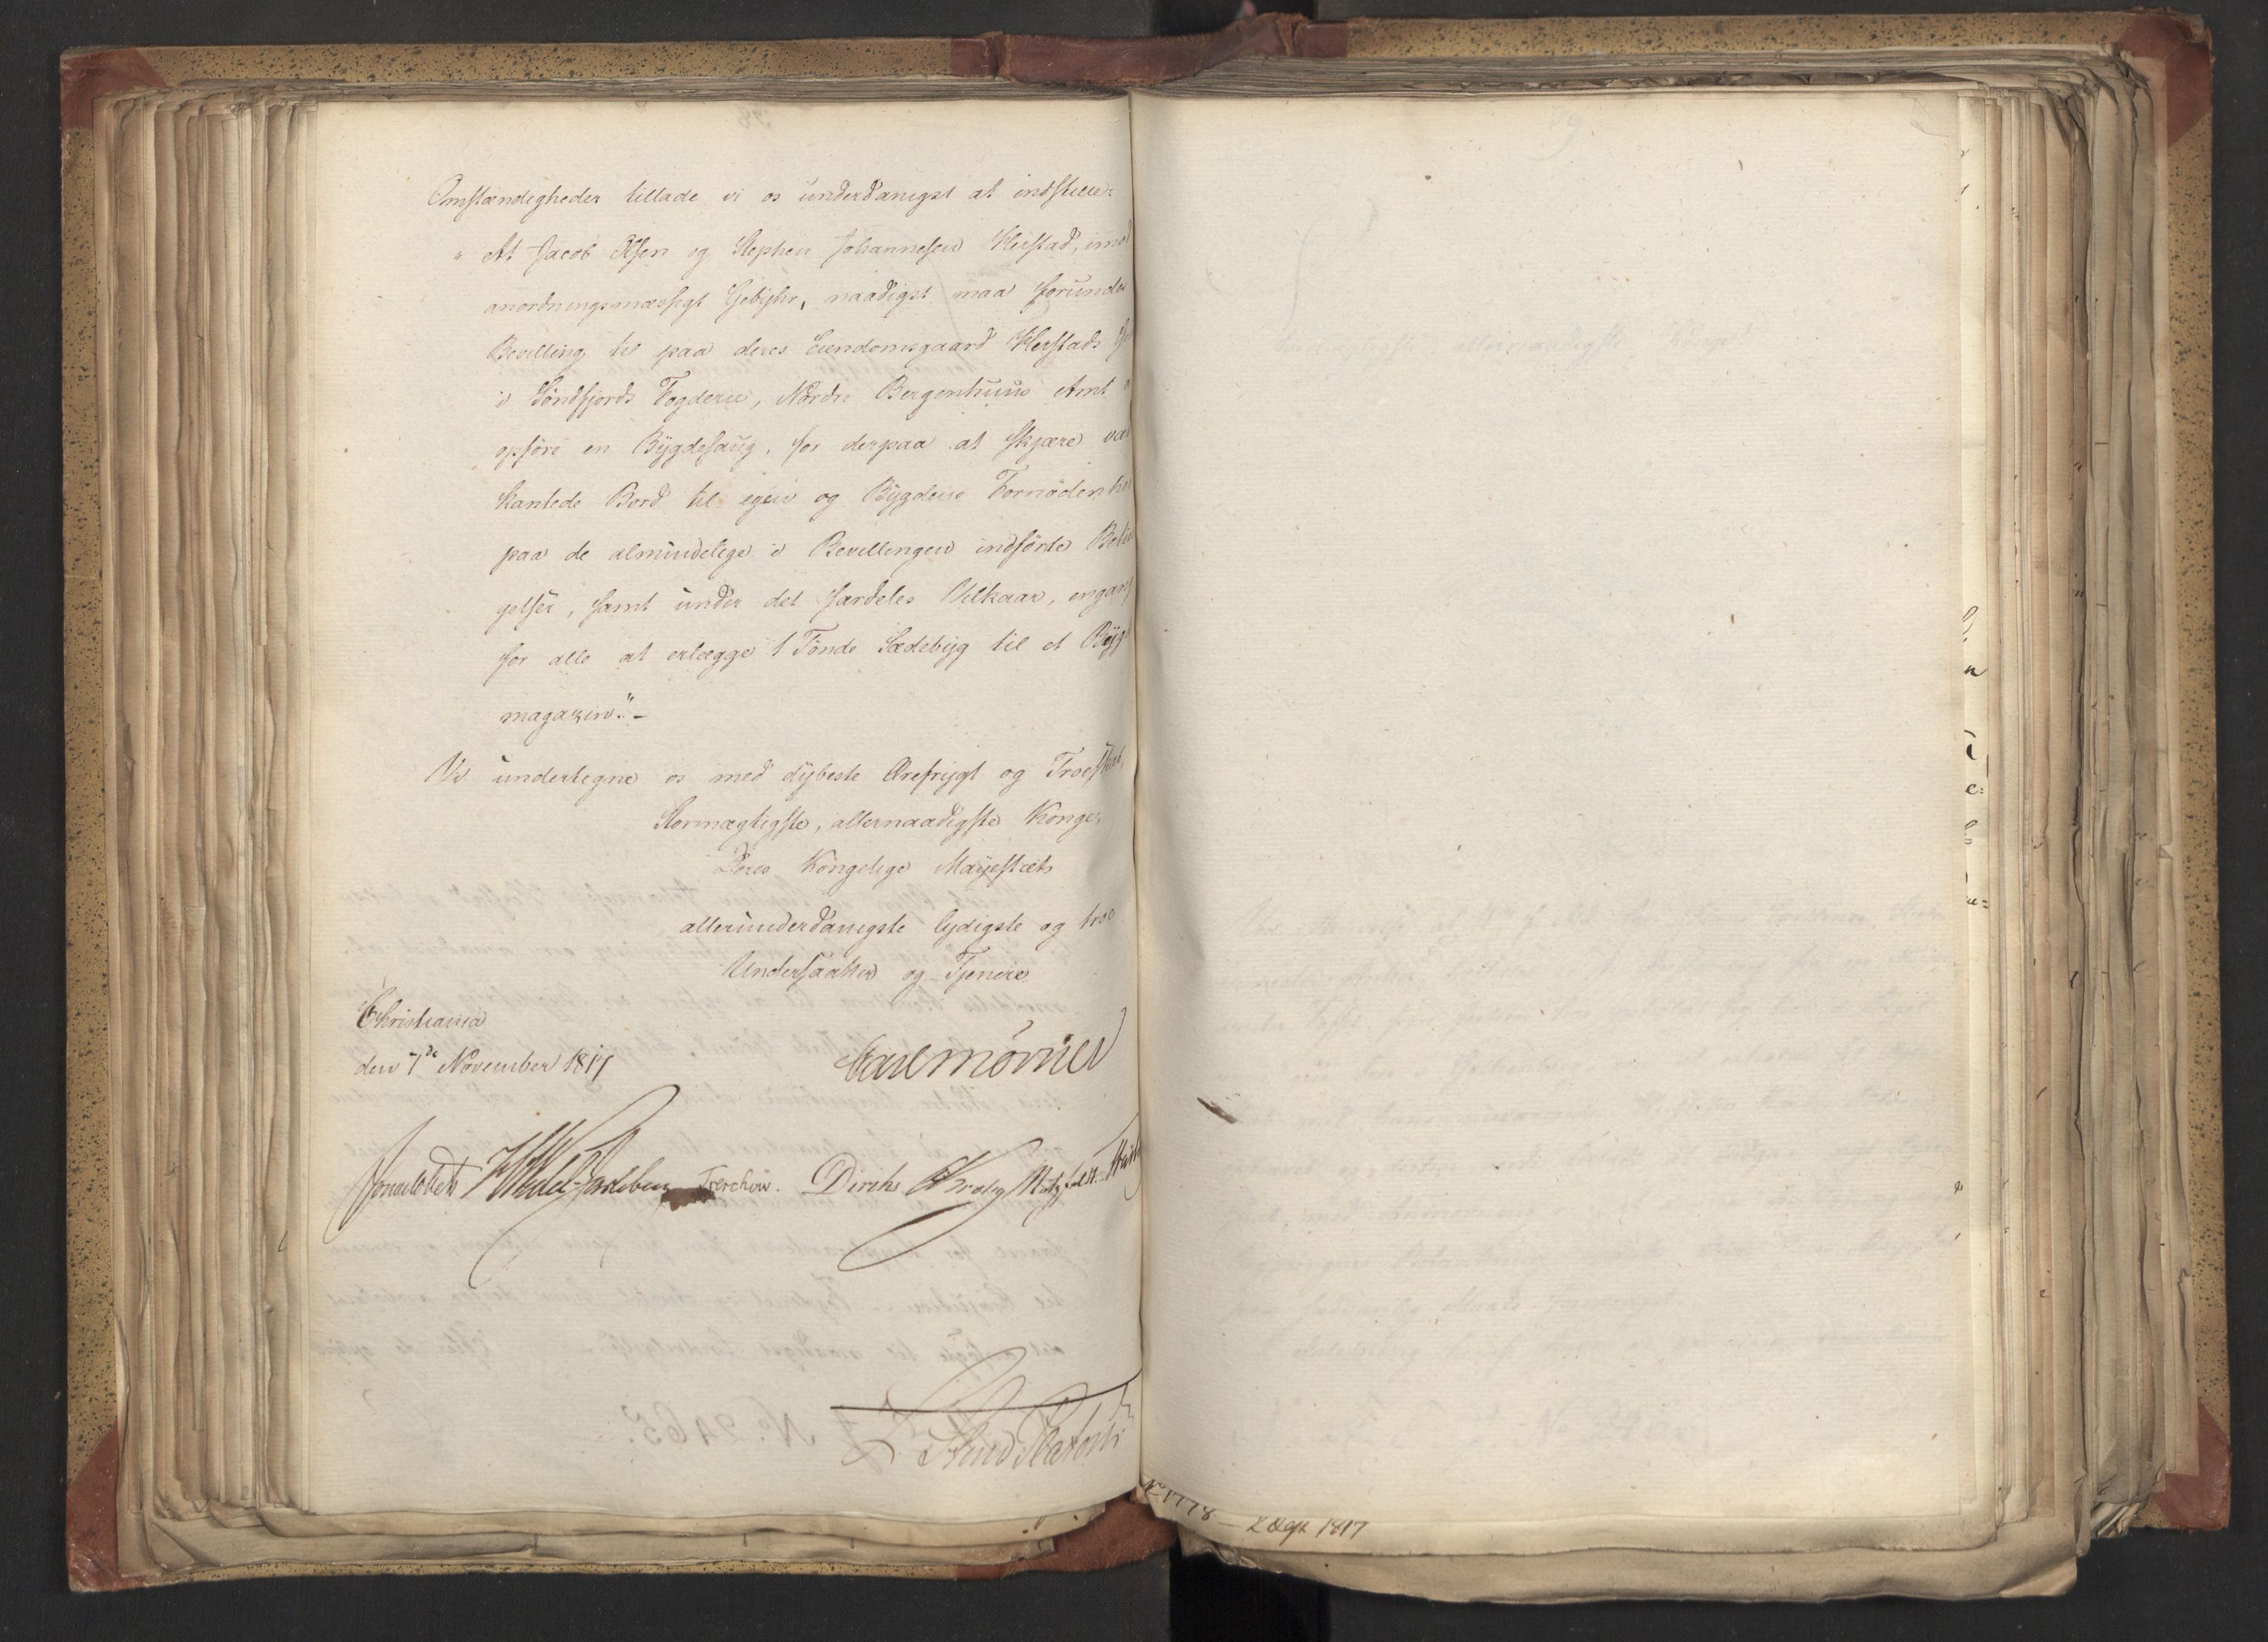 Omstændigheder tillade vi os underdanigst at indstille:
" At Jacob Olsen og Stephen Johannesen Herstad, imod
anordningsmæssigt Gebyhr, naadigst maa forundes
Bevilling til paa deres Eiendomsgaard Herstads
i Söndfjords Fogderie, Nordre Bergenhuus Amt
opföre en Bygdesaug, for derpaa at skjære
kantede Bord til egen og Bygdens Fornödenhed
paa de almindelige i Bevillingen indförte Betin
gelser, samt under det særdeles Vilkaar, engang
for alle at erlægge 1 Tönde Sædebyg til et Bygde
magazin". -
Vi undertegne os med dybeste Ærefrygt og Troeskab,
Stormægtigste, allernaadigste Konge,
Deres Kongelige Mayestæts
allerunderdanigste lydigste og troe
Undersaatter og Tjenere
Christiania
den 7de November 1817
Carl Mörner
Sommerfeldt HWedel Jarlsberg Treschow. Diriks Krog
No 1778 - 2 Sept 1817